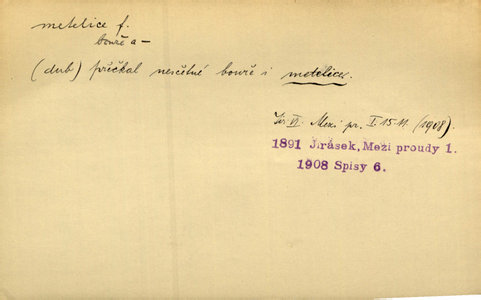 metelice f.
bouře a –
(dub) přečkal nesčetné bouře i metelice.
Jir. VI. Mezi pr. I. 15.11. (1908).
1891 Jirásek, Mezi proudy 1.
1908 Spisy 6.